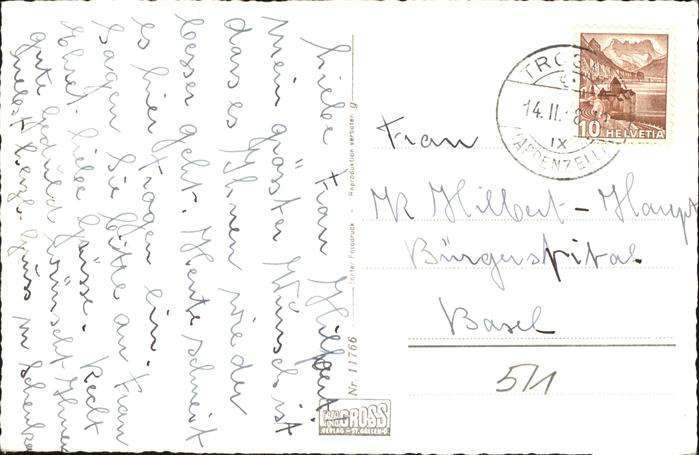 Liebe Frau Hilpert-
Mein grösster Wunsch ist
dass es Ihnen wieder
besser geht. Heute scheint
es hier
sagen Sie bitte an Frau
liebe Grüsse. Recht
gute Geduld wünscht Ihnen
Gruss
Nr. 11766
Reproduktion verboten
GROSS
VERLAG - ST. GALLEN
TROGEN
14.II.
IX
(APPENZELL)
10 HELVETIA
Frau
Hilbert-Haupt
Bürgerspital
Basel
5/1